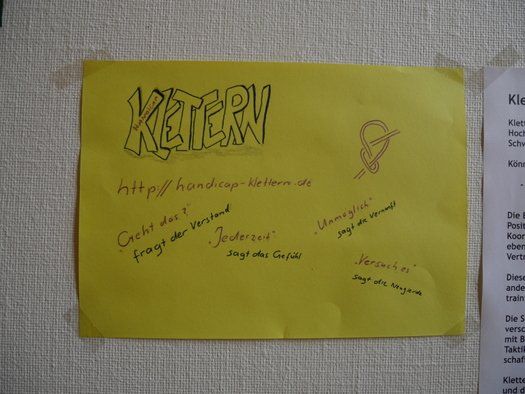 Handicap
KLETTERN
http://handicap-klettern.de
"Geht das?"
fragt der Verstand
"Jederzeit"
sagt das Gefühl
"Unmöglich"
sagt die Vernunft
"Versuch es"
sagt die Neugierde
Kle
Klett
Hoch
Schw
Könn
Die B
Posit
Koor
eben
Vertr
Diese
ande
train
Die S
versc
mit B
Taktik
schaf
Klette
und d